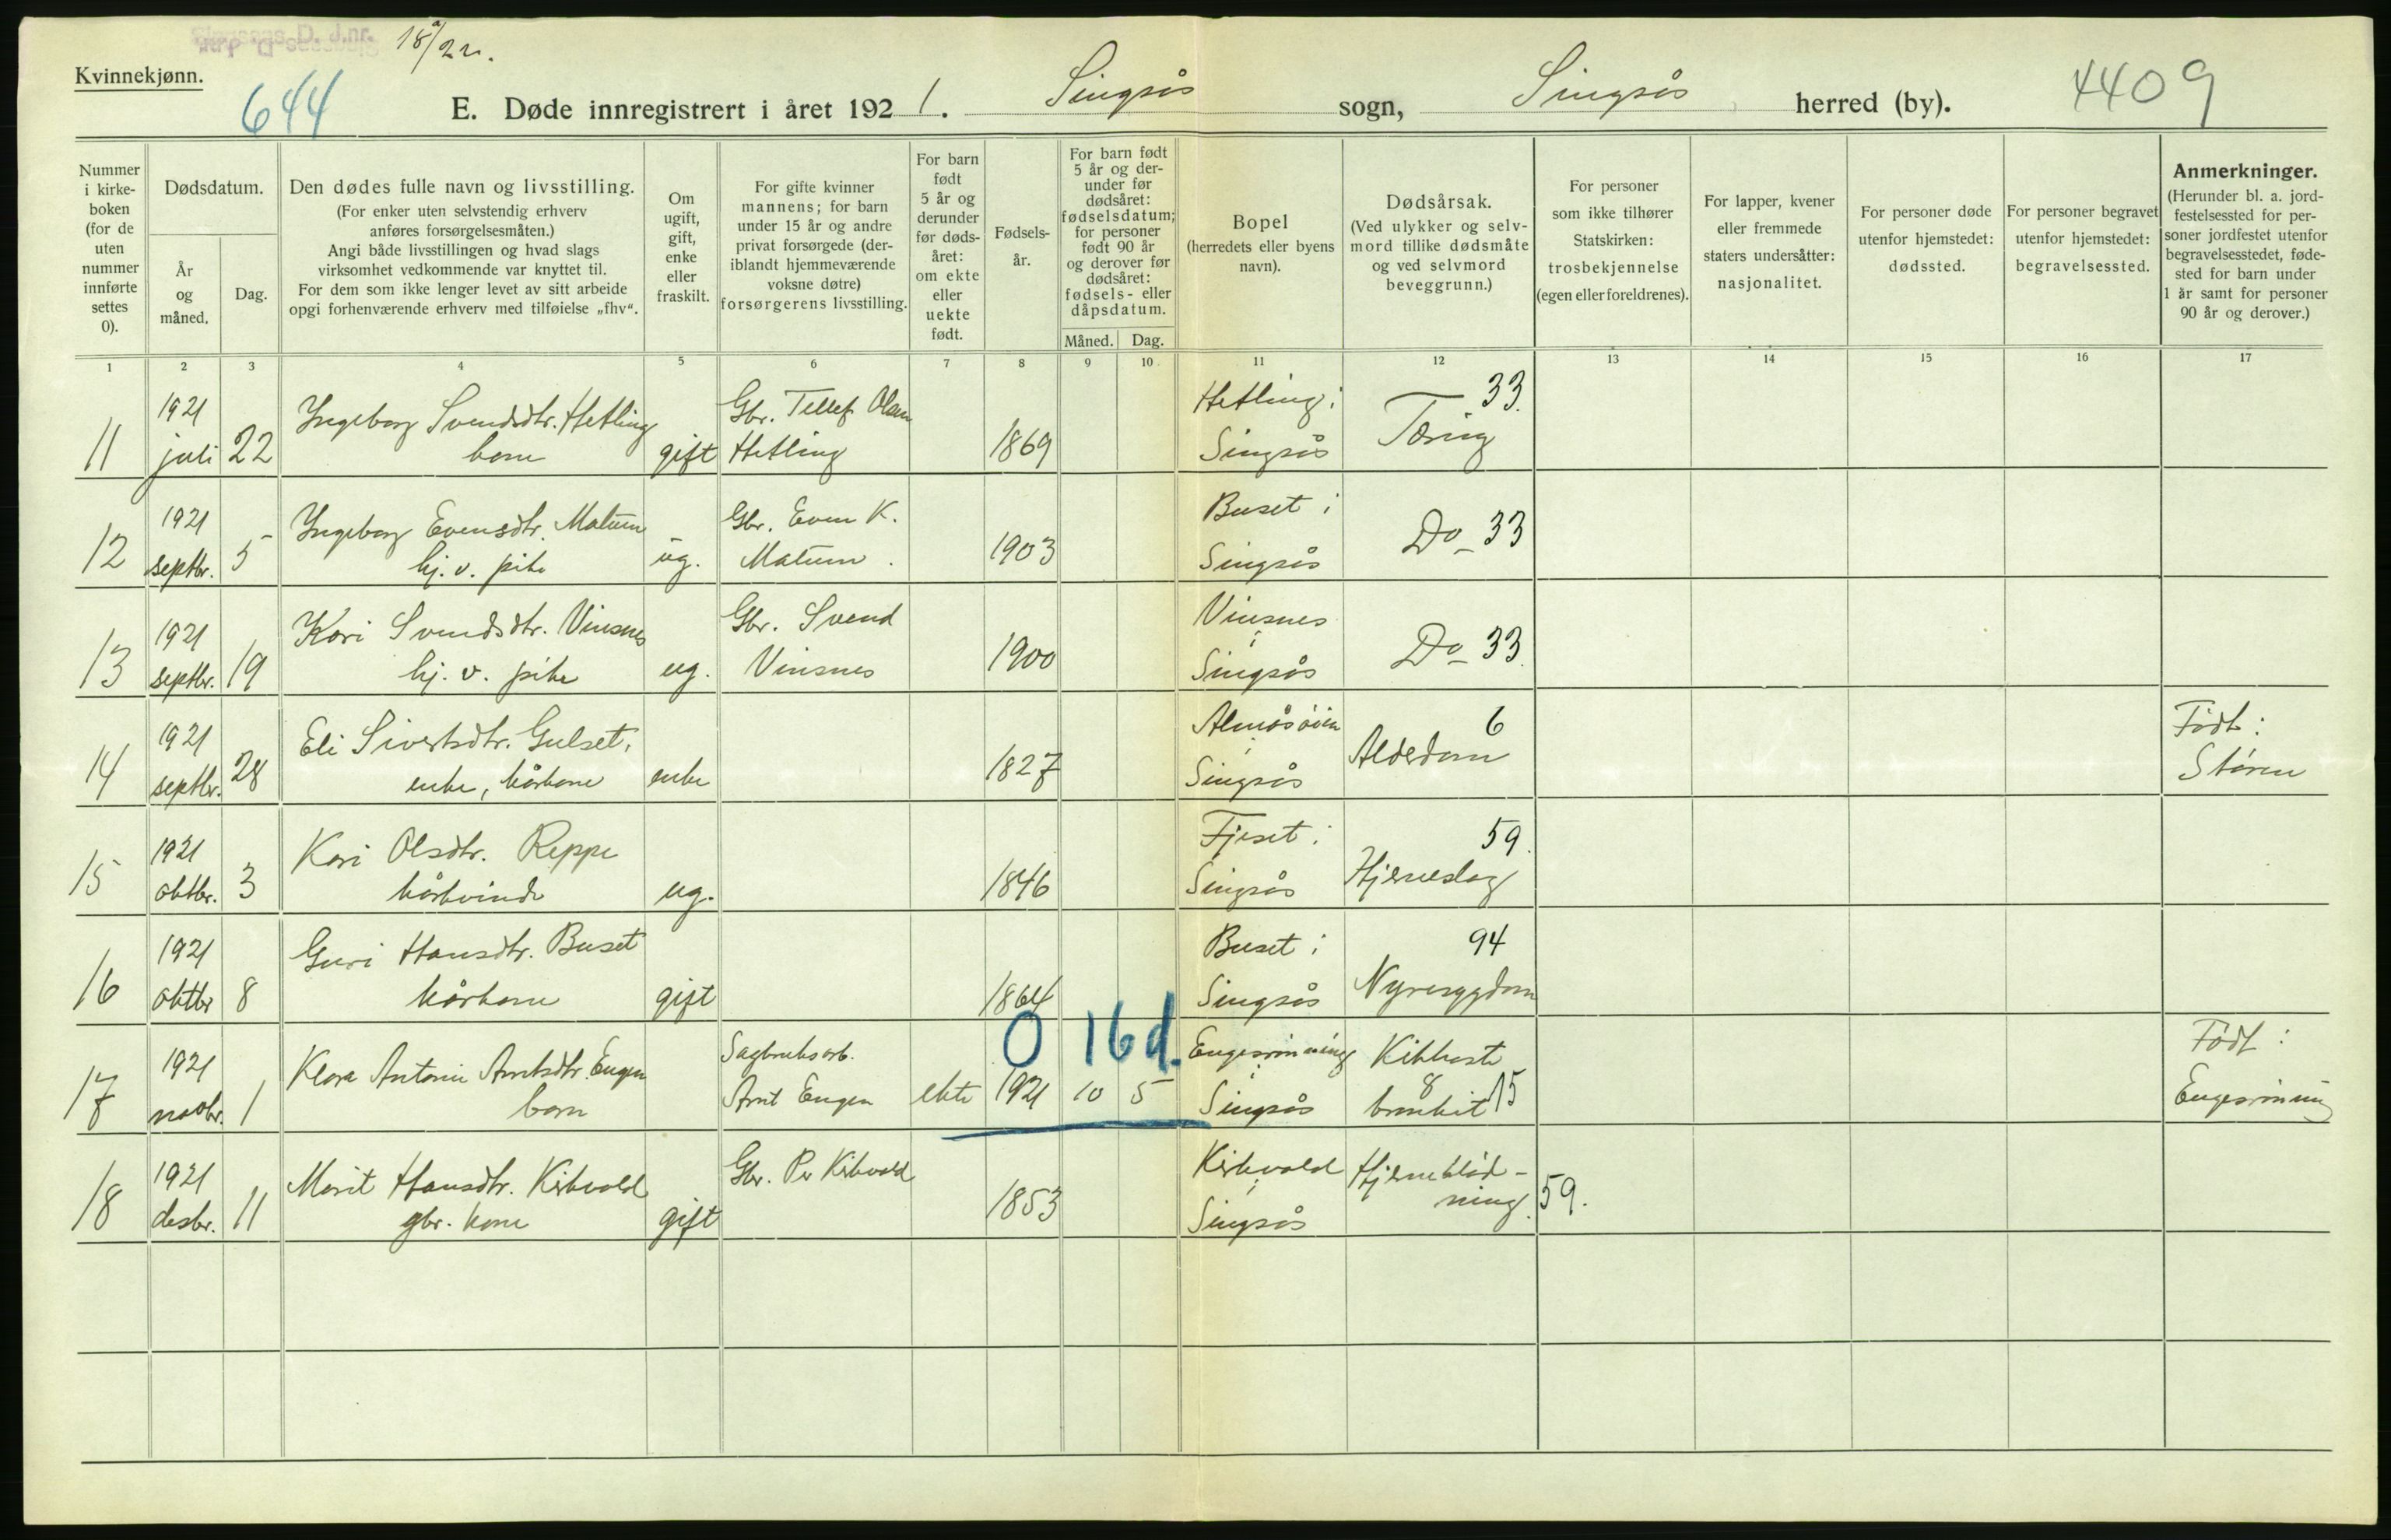 18/22.
Kvinnekjønn.
644
E. Døde innregistrert i året 1921. Singsås sogn, Singsås herred (by).
4409
Nummer i kirke-boken (for de uten nummer innførte settes 0).
Dødsdatum.
År og måned.
Dag.
Den dødes fulle navn og livsstilling.
(For enker uten selvstendig erhverv anføres forsørgelsesmåten.)
Angi både livsstillingen og hvad slags virksomhet vedkommende var knyttet til.
For dem som ikke lenger levet av sitt arbeide opgi forhenværende erhverv med tilføielse „fhv“.
Om ugift, gift, enke eller fraskilt.
For gifte kvinner mannens; for barn under 15 år og andre privat forsørgede (deriblandt hjemmeværende voksne døtre) forsørgerens livsstilling.
For barn født 5 år og derunder før dødsåret: om ekte eller uekte født.
Fødselsår.
For barn født 5 år og derunder før dødsåret: fødselsdatum; for personer født 90 år og derover før dødsåret: fødsels- eller dåpsdatum.
Måned. Dag.
Bopel (herredets eller byens navn).
Dødsårsak.
(Ved ulykker og selvmord tillike dødsmåte og ved selvmord beveggrunn.)
For personer som ikke tilhører Statskirken: trosbekjennelse (egen eller foreldrenes).
For lapper, kvener eller fremmede staters undersåtter: nasjonalitet.
For personer døde utenfor hjemstedet: dødssted.
For personer begravet utenfor hjemstedet: begravelsessted.
Anmerkninger.
(Herunder bl. a. jordfestelsessted for personer jordfestet utenfor begravelsesstedet, fødested for barn under 1 år samt for personer 90 år og derover.)
1 2 3 4 5 6 7 8 9 10 11 12 13 14 15 16 17
11 1921 juli 22 Ingeborg Svendsdtr. Hetling kone gift Gbr. Tellef Olsen Hetling 1869 Hetling i Singsås Tæring 33.
12 1921 septbr. 5 Ingeborg Evensdtr. Matum hj. v. pike ug. Gbr. Even K. Matum. 1903 Buset i Singsås Do 33
13 1921 septbr. 19 Kari Svendsdtr. Vinsnes hj. v. pike ug. Gbr. Svend Vinsnes 1900 Vinsnes i Singsås Do 33.
14 1921 septbr. 28 Eli Sivertsdtr. Gulset, enke, kårkone enke 1827 Almåsøien i Singsås Alderdom 6 Født: Støren
15 1921 oktbr. 3 Kari Olsdtr. Reppe kårkvinde ug. 1846 Fjeset i Singsås Hjerneslag 59.
16 1921 oktbr 8 Guri Hansdtr. Buset kårkone gift 1864 Buset i Singsås Nyresygdom 94
0 16d.
17 1921 novbr. 1 Klara Antonie Arntsdtr. Engen barn Sagbruksarb. Arnt Engen ekte 1921 10 5 Engesrønning i Singsås Kikhoste 8 bronkit 15 Født: Engesrønning
18 1921 desbr. 11 Marit Hansdtr. Kirkvold gbr. kone gift Gbr. Per Kirkvold 1853 Kirkvold i Singsås Hjerneblødning. 59.